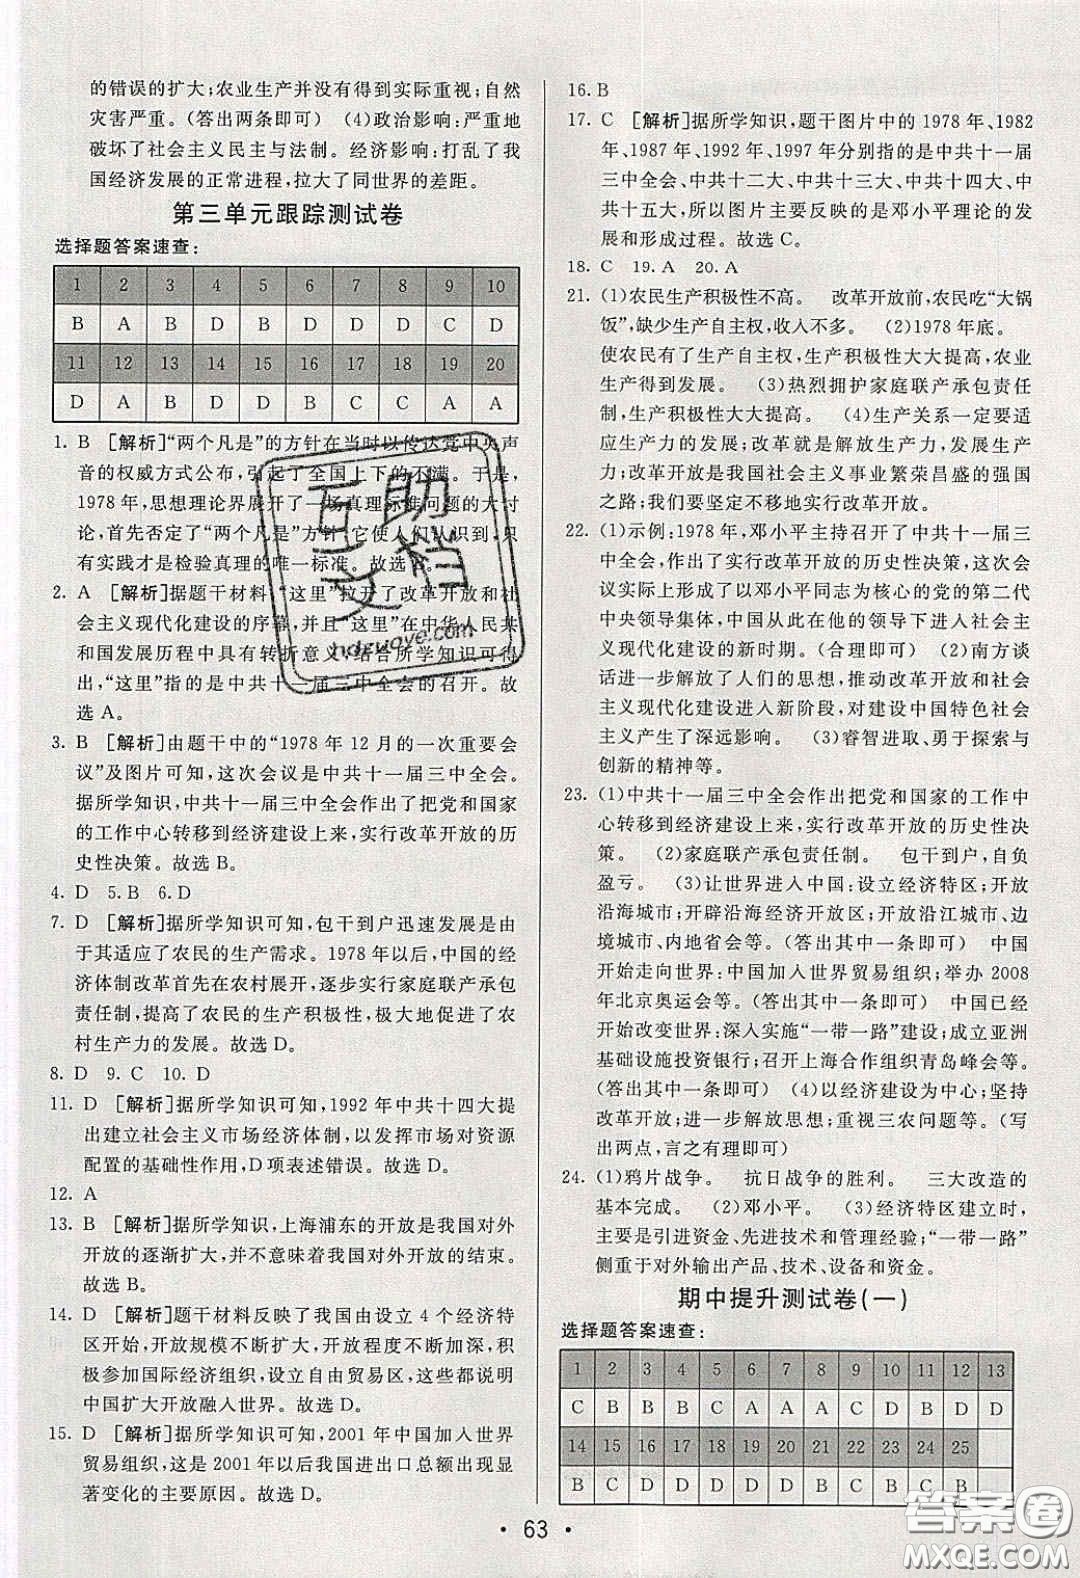 的错误的扩大;农业生产并没有得到实际重视;自然
灾害严重。(答出两条即可) (4)政治影响:严重地
破坏了社会主义民主与法制。经济影响:打乱了我
国经济发展的正常进程,拉大了同世界的差距。
第三单元跟踪测试卷
选择题答案速查:
1 2 3 4 5 6 7 8 9 10
B A B D B D D D C D
11 12 13 14 15 16 17 18 19 20
D A B D D B C C A A
1. B [解析]“两个凡是”的方针在当时以传达党中央声
音的权威方式公布,引起了全国上下的不满。于是,
1978年,思想理论界展开了一场真理标准问题的大讨
论,首先否定了“两个凡是”方针,它使人们认识到,只
有实践才是检验真理的唯一标准。故选B。
2. A [解析]据题干材料“这里”拉开了改革开放和社
会主义现代化建设的序幕,并且“这里”在中华人民共
和国发展历程中具有转折意义,结合所学知识可知得
出,“这里”指的是中共十一届三中全会的召开。故
选A。
3. B [解析]由题干中的“1978年12月的一次重要会
议”及图片可知,这次会议是中共十一届三中全会。
据所学知识,中共十一届三中全会作出了把党和国家
的工作中心转移到经济建设上来,实行改革开放的历
史性决策。故选B。
4. D 5. B 6. D
7. D [解析]据所学知识可知,包干到户迅速发展是由
于其适应了农民的生产需求。1978年以后,中国的经
济体制改革首先在农村展开,逐步实行家庭联产承包
责任制,提高了农民的生产积极性,极大地促进了农
村生产力的发展。故选D。
8. D 9. C 10. D
11. D [解析]据所学知识可知,1992年中共十四大提
出建立社会主义市场经济体制,以发挥市场对资源
配置的基础性作用,D项表述错误。故选D。
12. A
13. B [解析]据所学知识,上海浦东的开放是我国对外
开放的逐渐扩大,并不意味着我国对外开放的结束。
故选B。
14. D [解析]题干材料反映了我国由设立4个经济特
区开始,开放规模不断扩大、开放程度不断加深,并积
极参加国际经济组织、设立自由贸易区,这些都说明
中国扩大开放融入世界。故选D。
15. D [解析]据所学知识可知,2001年中国加入世界
贸易组织,这是2001年以后我国进出口总额出现显
著变化的主要原因。故选D。
16. B
17. C [解析]据所学知识,题干图片中的1978年、1982
年、1987年、1992年、1997年分别指的是中共十一届
三中全会、中共十二大、中共十三大、中共十四大、中
共十五大,所以图片主要反映的是邓小平理论的发
展和形成过程。故选C。
18. C 19. A 20. A
21. (1)农民生产积极性不高。 改革开放前,农民吃“大锅
饭”,缺少生产自主权,收入不多。 (2)1978年底。
使农民有了生产自主权,生产积极性大大提高,农业
生产得到发展。 (3)热烈拥护家庭联产承包责任
制,生产积极性大大提高。 (4)生产关系一定要适
应生产力的发展;改革就是解放生产力,发展生产
力;改革开放是我国社会主义事业繁荣昌盛的强国
之路;我们要坚定不移地实行改革开放。
22. (1)示例:1978年,邓小平主持召开了中共十一届三
中全会,作出了实行改革开放的历史性决策,这次会
议实际上形成了以邓小平同志为核心的党的第二代
中央领导集体,中国从此在他的领导下进入社会主
义现代化建设的新时期。(合理即可) (2)南方谈
话进一步解放了人们的思想,推动改革开放和社会
主义现代化建设进入新阶段,对建设中国特色社会
主义产生了深远影响。 (3)睿智进取、勇于探索与
创新的精神等。
23. (1)中共十一届三中全会作出把党和国家的工作中
心转移到经济建设上来,实行改革开放的历史性决
策。 (2)家庭联产承包责任制。 包干到户,自负
盈亏。 (3)让世界进入中国:设立经济特区;开放
沿海城市;开辟沿海经济开放区;开放沿江城市、边
境城市、内地省会等。(答出其中一条即可) 中国
开始走向世界:中国加入世界贸易组织;举办2008
年北京奥运会等。(答出其中一条即可) 中国已经
开始改变世界:深入实施“一带一路”建设;成立亚洲
基础设施投资银行;召开上海合作组织青岛峰会等。
(答出其中一条即可) (4)以经济建设为中心;坚持
改革开放;进一步解放思想;重视三农问题等。(写
出两点,言之有理即可)
24. (1)鸦片战争。 抗日战争的胜利。 三大改造的
基本完成。 (2)邓小平。 (3)经济特区建立时,
主要是引进资金、先进技术和管理经验;“一带一路”
侧重于对外输出产品、技术、设备和资金。
期中提升测试卷(一)
选择题答案速查:
1 2 3 4 5 6 7 8 9 10 11 12 13
C B B D C A A A C D B D C
14 15 16 17 18 19 20 21 22 23 24 25
B C D D D D B A C B B D
• 63 •
互助
文档
hdzuoye.com
答案圈
MXQE.COM